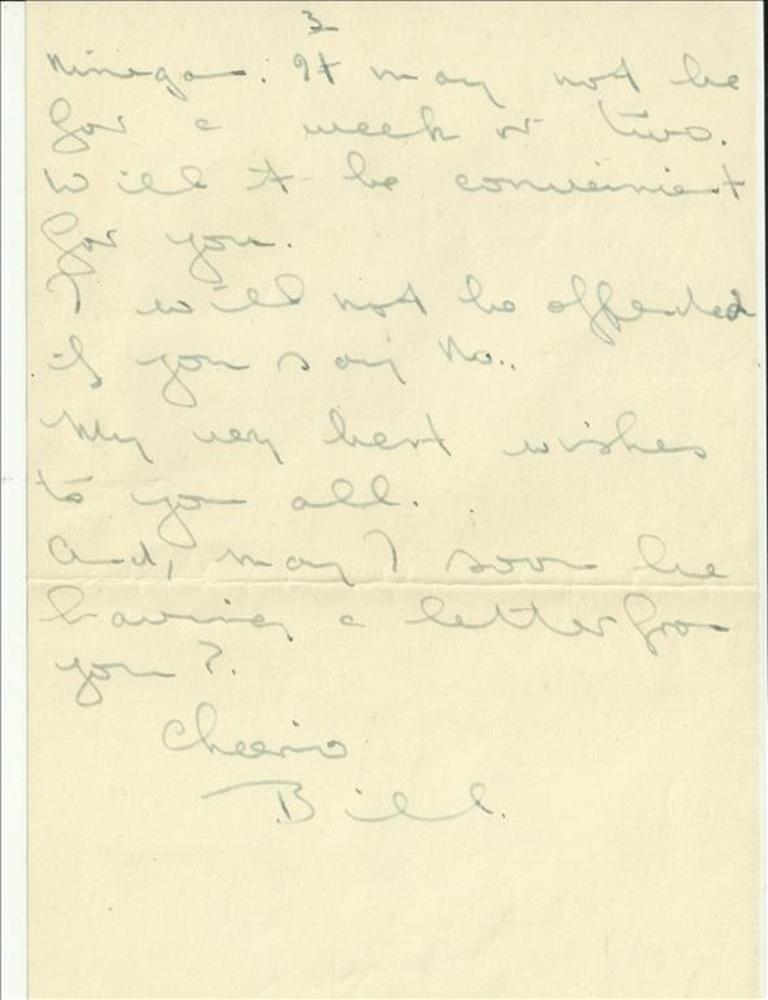 3
Ninegan. It may not be
for a week or two.
Will it be convenient
for you.
I will not be offended
if you say No..
My very best wishes
to you all.
And, may I soon be
having a letter from
you?.
Cheerio
Bill.